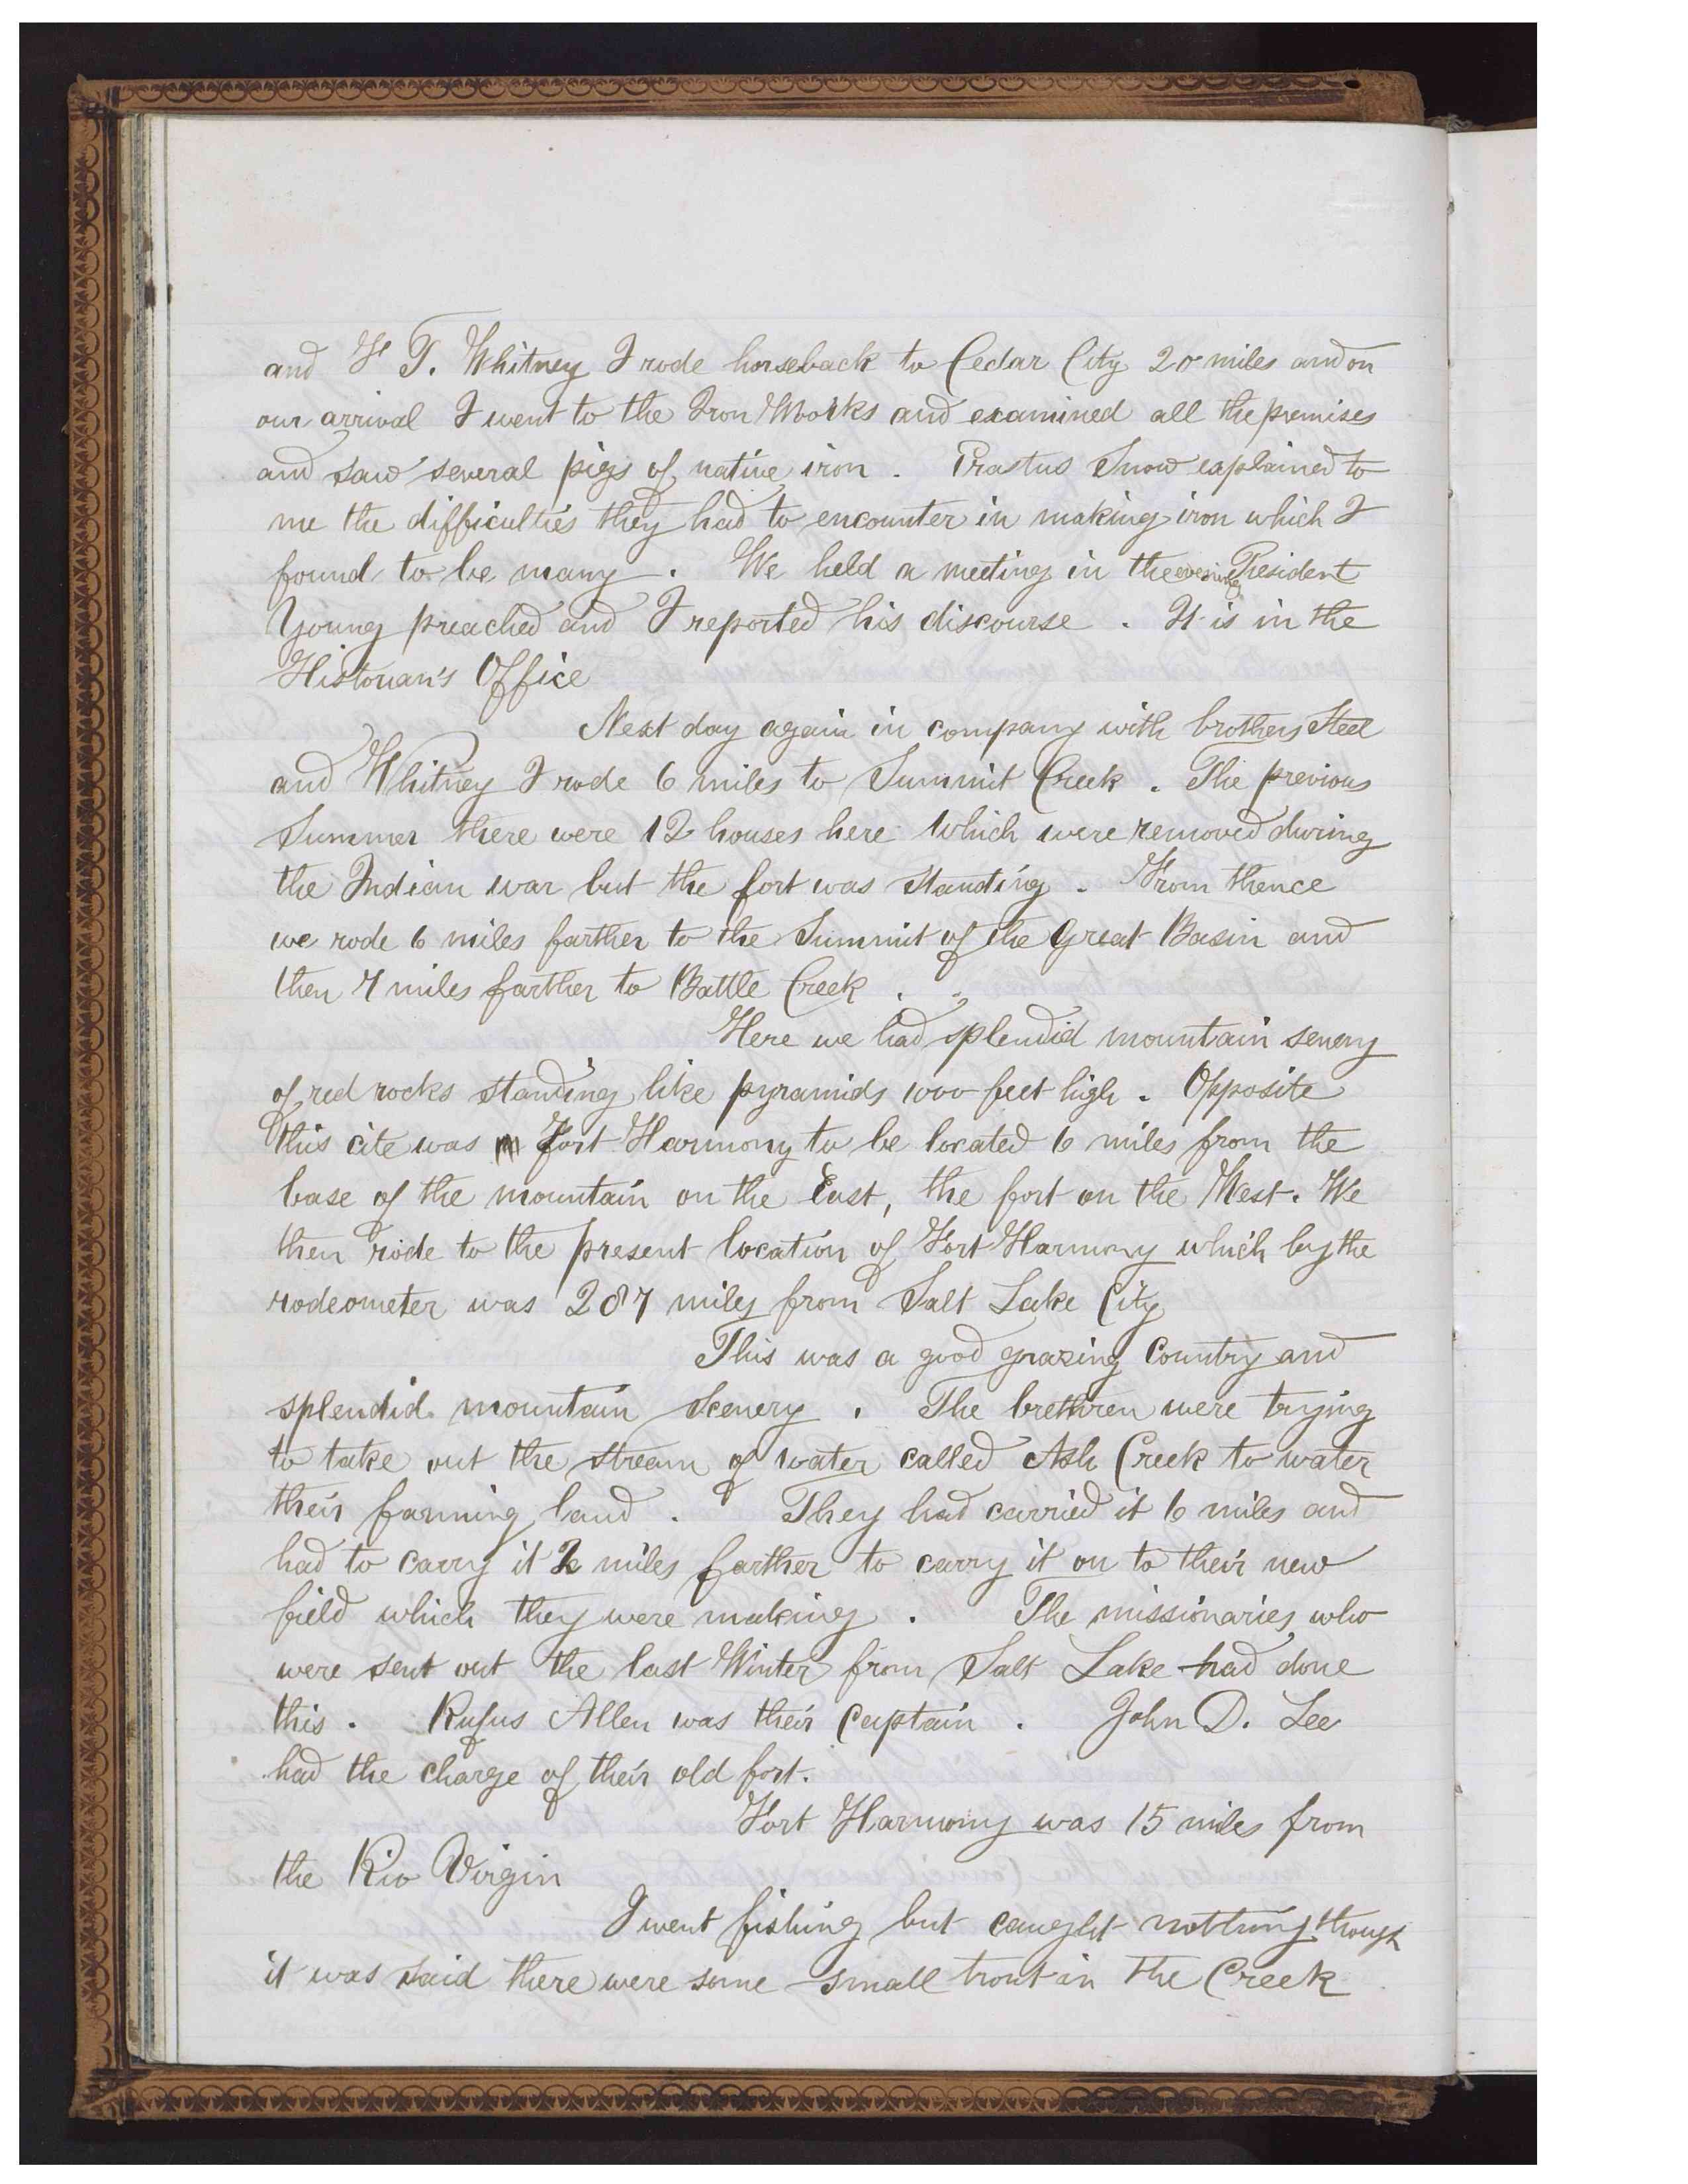 and F T. Whitney I rode horseback to Cedar City 20 miles and on
our arrival I went to the Iron Works and examined all the premises
and saw several pigs of native iron. Erastus Snow explained to
me the difficulties they had to encounter in making iron which I
found to be many. We held a meeting in the evening President
Young preached and I reported his discourse. It is in the
Historian's Office
Next day again in company with brothers Steel
and Whitney I rode 6 miles to Summit Creek. The previous
Summer there were 12 houses here which were removed during
the Indian war but the fort was standing. From thence
we rode 6 miles farther to the Summit of the Great Basin and
then 7 miles farther to Battle Creek.
Here we had splendid mountain senery
of red rocks standing like pyramids 1000 feet high. Opposite
this cite was Fort Harmony to be located 6 miles from the
base of the mountain on the East, the fort on the West. We
then rode to the present location of Fort Harmony which by the
rodeometer was 287 miles from Salt Lake City
This was a good grazing Country and
splendid mountain scenery. The brethren were trying
to take out the stream of water called Ash Creek to water
their farming land. They had carried it 6 miles and
had to carry it 2 miles farther to carry it on to their new
field which they were making. The missionaries who
were sent out the last Winter from Salt Lake had done
this. Rufus Allen was their Captain. John D. Lee
had the charge of their old fort.
Fort Harmony was 15 miles from
the Rio Virgin
I went fishing but caught nothing though
it was said there were some small trout in the Creek